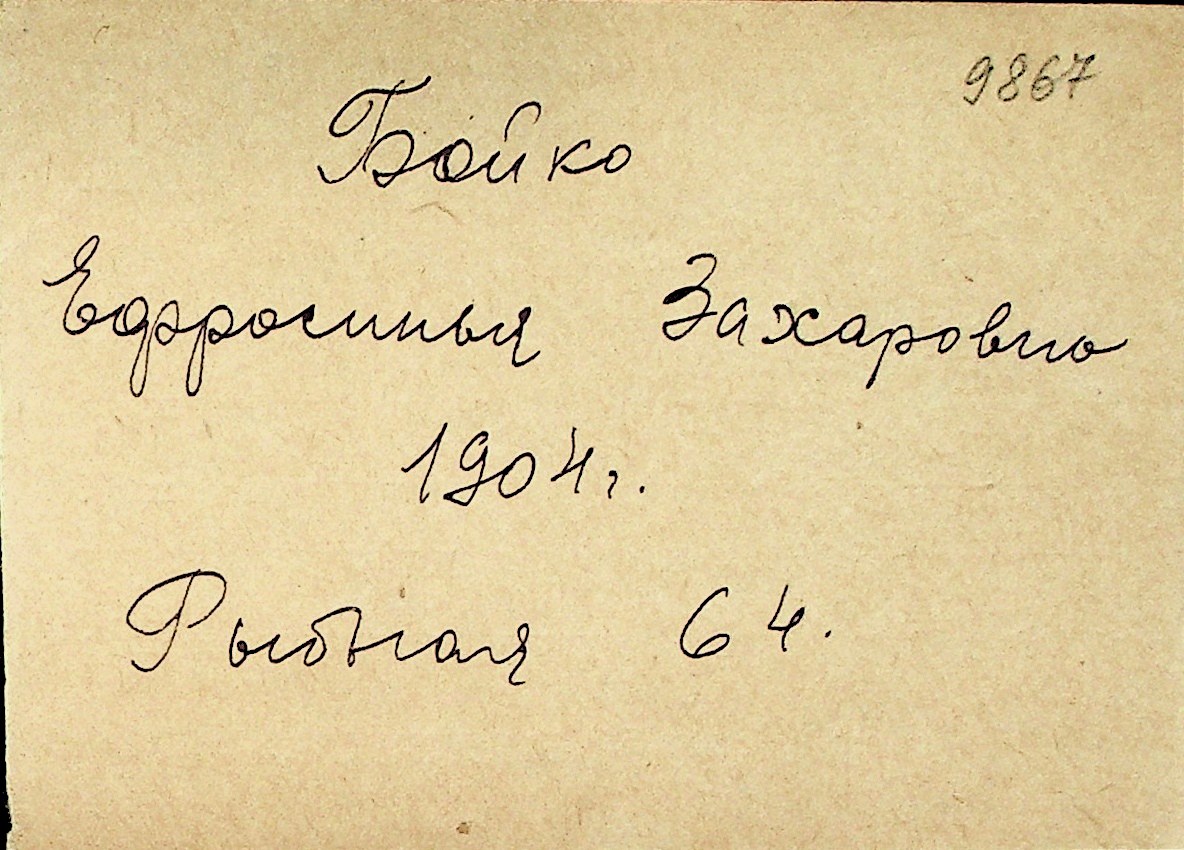 9867
Бойко
Ефросинья Захаровна
1904г.
Рыбная 64.